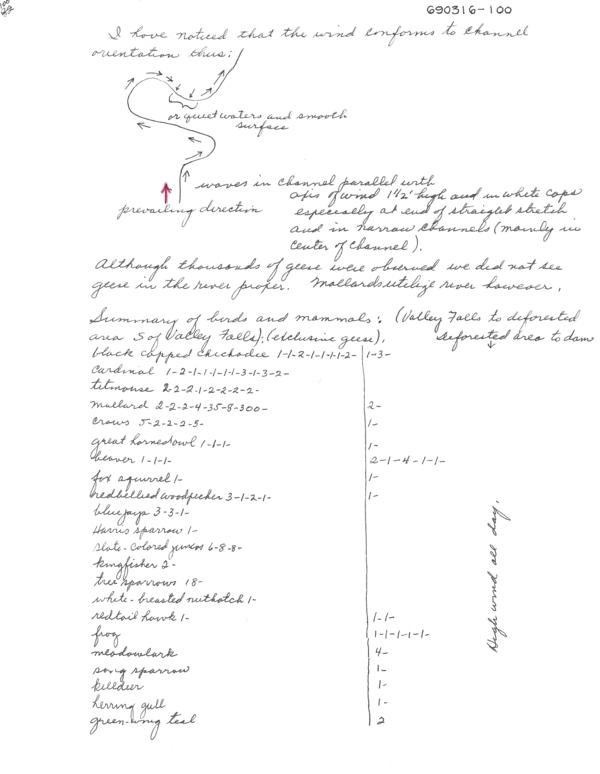 690316-100
I have noticed that the wind conforms to channel
orientation thus:
or quiet waters and smooth
surface
waves in channel parallel with
axis of wind 1½' high and in white caps
prevailing direction
especially at end of straight stretch
and in narrow channels (mainly in
center of channel).
Although thousands of geese were observed we did not see
geese in the river proper. Mallards utilize river however.
Summary of birds and mammals: (Valley Falls to deforested
area S of Valley Falls); (exclusive geese). deforested area to dam
black capped chickadee 1-1-2-1-1-1-1-2- 1-3-
Cardinal 1-2-1-1-1-1-1-3-1-3-2-
titmouse 2-2-2-1-2-2-2-2-
mallard 2-2-2-4-35-8-300- 2-
crows 5-2-2-2-5- 1-
great horned owl 1-1-1- 1-
beaver 1-1-1- 2-1-4-1-1-
fox squirrel 1- 1-
redbellied woodpecker 3-1-2-1- 1-
bluejays 3-3-1-
Harris sparrow 1-
slate-colored juncos 6-8-8-
kingfisher 2-
tree sparrows 18-
white-breasted nuthatch 1-
redtail hawk 1- 1-1-
frog 1-1-1-1-1-
meadowlark 4-
song sparrow 1-
killdeer 1-
herring gull 1-
green-wing teal 2
High wind all day.